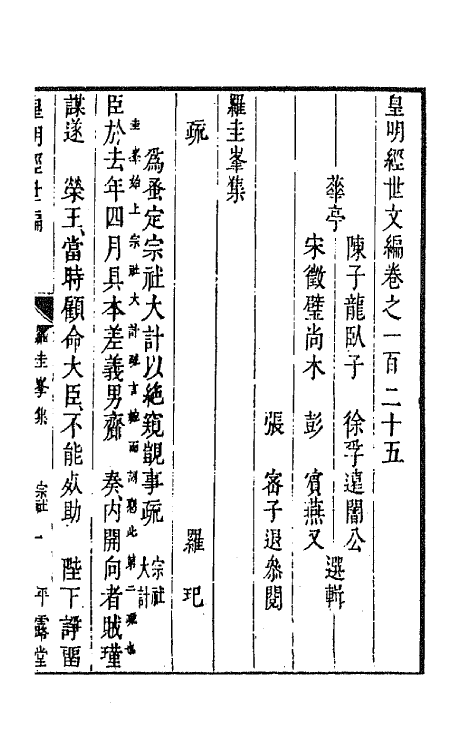 皇明經世文編卷之一百二十五
華亭
陳子龍臥子 徐孚遠闇公
宋徵璧尚木 彭 賓燕又
選輯
張 密子退參閱
羅圭峯集
疏 羅玘
爲蚤定宗社大計以絕窺覬事疏 宗社大計
圭峯始上宗社大計疏言此第二疏也
臣於去年四月具本差義男齋 奏內開向者賊瑾
謀遂 榮王當時顧命大臣不能效助 陛下諍畱
皇明經世編 羅圭峯集 宗社 一 平露堂